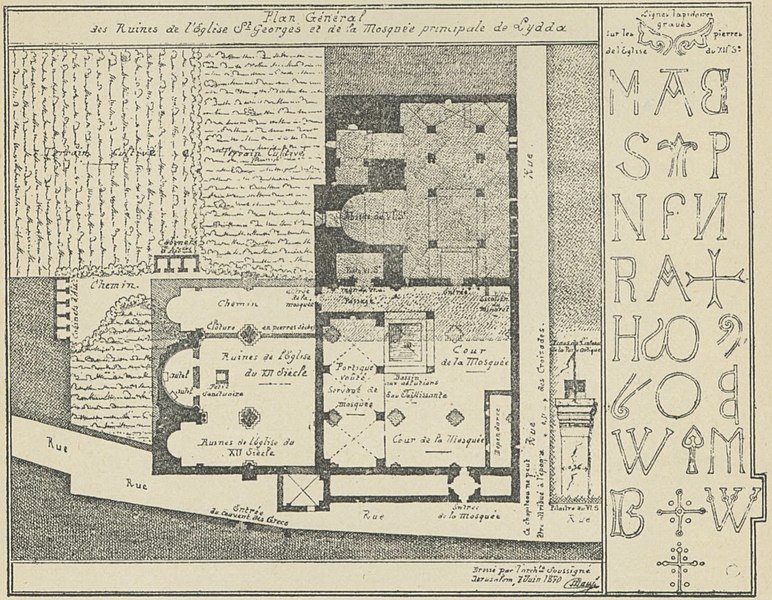 Plan Général
des Ruines de l'Église St Georges et de la Mosquée principale de Lydda
Signes lapidaires
gravés
sur les pierres
de l'Église du XIIe Se
Terrain Cultivé
Terrain Cultivé
Rue
Chemin
Chemin
Clôture en pierres sèches
Ruines de l'Église
du XII Siècle
Autel
Autel
Petit
Sanctuaire
Ruines de l'Église du
XII Siècle
Passage
Entrée
Escalier
Minaret
Portique
voûté
Servant de
mosquée
Bassin
aux ablutions
Eau Jaillissante
Cour
de la Mosquée
Cour de la Mosquée
Dépendance
Ce chapiteau ne peut
être attribué à l'époque des Croisades.
Rue
Pilastre du VI S
Rue
Rue
Rue
Entrée
du couvent des Grecs
Rue
Entrée
de la Mosquée
Dressé par l'archte Soussigné
Jerusalem, 7 Juin 1890
M A B
S P
N N
R A
H
W M
B W